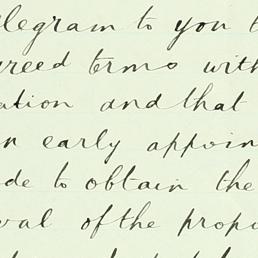 elegram to you
reed terms with
ation and that
n early appoin
de to obtain the
val of the propo